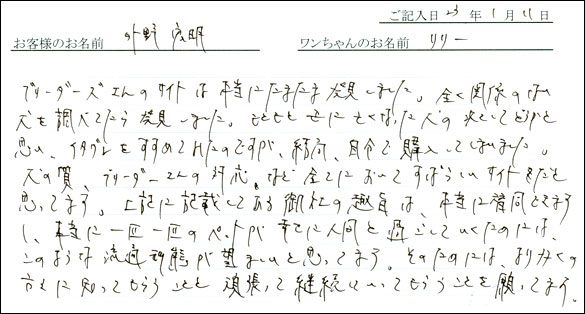 ご記入日 23 年 1 月 11 日
お客様のお名前 外野 宏明 ワンちゃんのお名前 リリー
ブリーダーズさんのサイトは本当にたまたま発見しました。全く関係のない
犬を調べてたら発見しました。もともと 亡くなった犬の次としてどうかと
思い、 すすめてみたのですが、結局、自分で購入してしまいました。
犬の質、ブリーダーさんの対応、など全てにおいてすばらしいサイトだと
思ってます。上記に記載してある御社の趣旨は、本当に賛同できます
し、本当に一匹一匹のペットが幸せに人間と過ごしていくためには、
このような流通形態が望ましいと思ってます。そのためには、より多くの
方々に知ってもらうことと頑張って継続していってもらうことを願ってます。